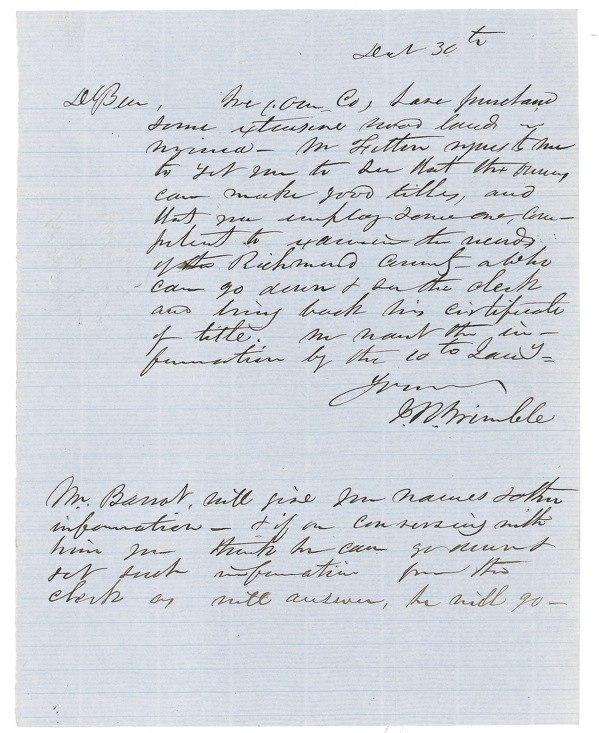 30th
Dr Ben, We (our Co) have purchased
some extensive wood lands in
Virginia – Mr wishes me
to get you to see that the owners
can make good titles, and
that you employ some one, com-
petent to examine the records
of the Richmond County – who
can go down & see the clerk
and bring back his certificate
of title. We want the in-
formation by the 10th Jany –
Yours
I. R. Trimble
Mr. Barrot, will give you names & other
information – & if on conversing with
him you think he can go down &
get such information from the
clerk as will answer, he will go –